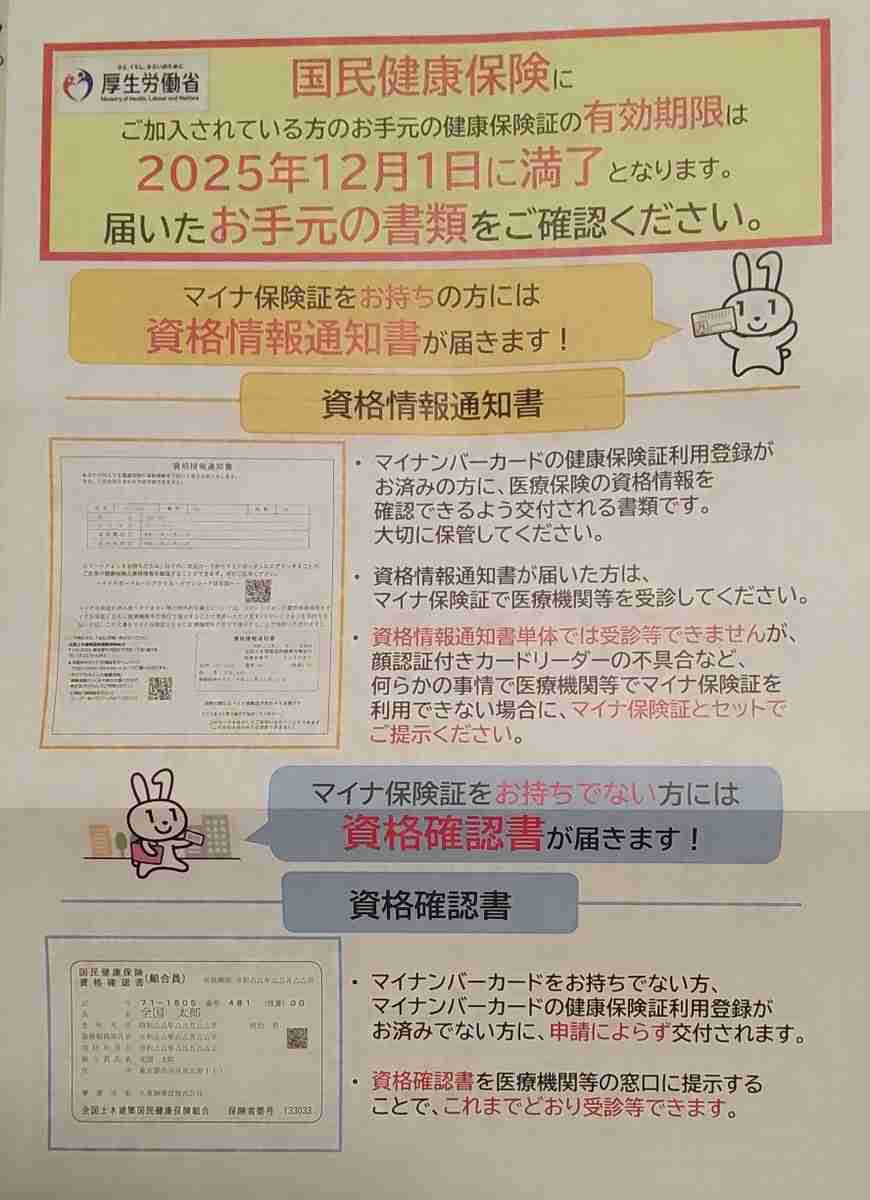 ひと、くらし、みらいのために
厚生労働省
Ministry of Health, Labour and Welfare
国民健康保険に
ご加入されている方のお手元の健康保険証の有効期限は
2025年12月1日に満了となります。
届いたお手元の書類をご確認ください。
マイナ保険証をお持ちの方には
資格情報通知書が届きます!
資格情報通知書
資格情報通知書
・ マイナンバーカードの健康保険証利用登録が
お済みの方に、医療保険の資格情報を
確認できるよう交付される書類です。
大切に保管してください。
・ 資格情報通知書が届いた方は、
マイナ保険証で医療機関等を受診してください。
・ 資格情報通知書単体では受診等できませんが、
顔認証付きカードリーダーの不具合など、
何らかの事情で医療機関等でマイナ保険証を
利用できない場合に、マイナ保険証とセットで
ご提示ください。
マイナ保険証をお持ちでない方には
資格確認書が届きます!
資格確認書
国民健康保険
資格確認書(組合員)
71-1505 番号 481 (枝番)00
氏 名 全国 太郎
全国土木建築国民健康保険組合 保険者番号 133033
・ マイナンバーカードをお持ちでない方、
マイナンバーカードの健康保険証利用登録が
お済みでない方に、申請によらず交付されます。
・ 資格確認書を医療機関等の窓口に提示する
ことで、これまでどおり受診等できます。